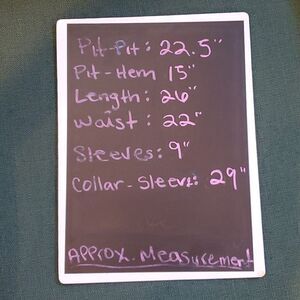 Pit-Pit: 22.5"
Pit-Hem 15"
Length: 26"
Waist: 22"
Sleeves: 9"
Collar-Sleeve: 29"
Approx. Measurement